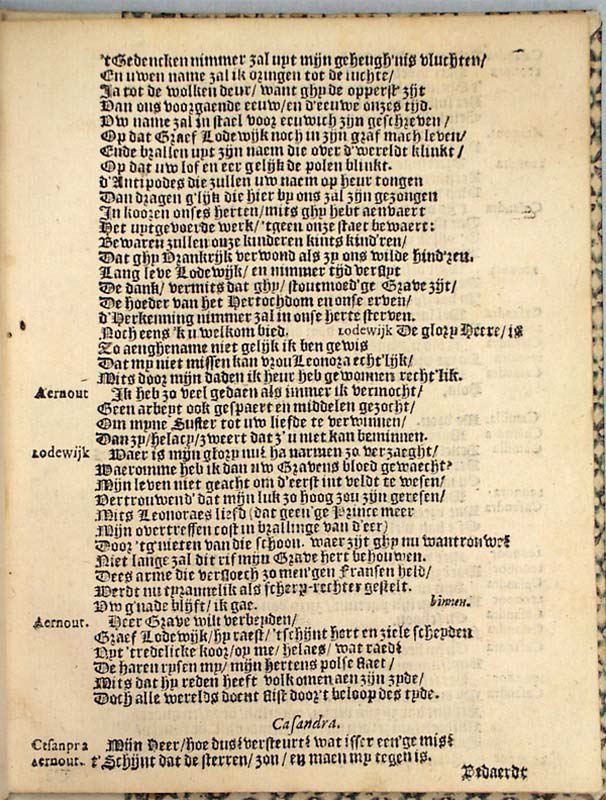 'tGedencken nimmer zal uyt mijn geheugh'nis vluchten/
En uwen name zal ik dringen tot de luchte/
Ja tot de wolken deur/ want ghy de opperst' zijt
Van ons voorgaende eeuw/ en d'eeuwe onzes tijd.
Uw name zal in stael voor eeuwich zijn geschreven/
Op dat Graef Lodewijk noch in zijn graf mach leven/
Ende brallen uyt zijn naem die over d'wereldt klinkt/
Op dat uw lof en eer gelijk de polen blinkt.
d'Antipodes die zullen uw naem op heur tongen
Dan dragen g'lijk die hier by ons zal zijn gezongen
In kooren onses herten/ mits ghy hebt aenvaert
Het uytgevoerde werk/ 'tgeen onze staet bewaert:
Bewaren zullen onze kinderen kints kind'ren/
Dat ghy Vrankrijk verwond als zy ons wilde hind'ren.
Lang leve Lodewijk/ en nimmer tijd verslyt
De dank/ vermits dat ghy/ stoutmoed'ge Grave zijt/
De hoeder van het Hertochdom en onse erven/
d'Herkenning nimmer zal in onse herte sterven.
Noch eens 'k u welkom bied. Lodewijk De glory Heere/ is
Zo aenghename niet gelijk ik ben gewis
Dat my niet missen kan vrou Leonora echt'lijk/
Mits door mijn daden ik heur heb gewonnen recht'lik.
Aernout Ik heb zo veel gedaen als immer ik vermocht/
Geen arbeyt ook gespaert en middelen gezocht/
Om myne Suster tot uw liefde te verwinnen/
Dan zy/ helacy/ zweert dat z' u niet kan beminnen.
Lodewijk Waer is mijn glory nu? ha narmen zo verzaeght/
Waeromme heb ik dan uw Gravens bloed gewaecht?
Mijn leven niet geacht om d'eerst int veldt te wesen/
Vertrouwend' dat mijn luk zo hoog zou zijn geresen/
Mits Leonoraes liefd (dat geen'ge Prince meer
Mijn overtreffen cost in brallinge van d'eer)
Door 'tg'nieten van die schoon. waer zijt ghy nu wantrouwe?
Niet lange zal dit ris mijn Grave hert behouwen.
Dees arme die versloech zo men'gen Fransen held/
Werdt nu tyrannelik als scherp-rechter gestelt.
Uw g'nade blijft/ ik gae. binnen.
Aernout. Heer Grave wilt verbeyden/
Graef Lodewijk/ hy raest/ 'tschijnt hert en ziele scheyden
Uyt 'tredelicke koor/ oy me/ helaes/ wat raed?
De haren rysen my/ mijn hertens polse slaet/
Mits dat hy reden heeft volkomen aen zijn zyde/
Doch alle werelds doent slist door't beloop des tyde.
Casandra.
Cesanpra Mijn Heer/ hoe dus? versteurt? wat isser een'ge mis?
Aernout. t'Schijnt dat de sterren/ zon/ en maen my tegen is.
Bedaerdt